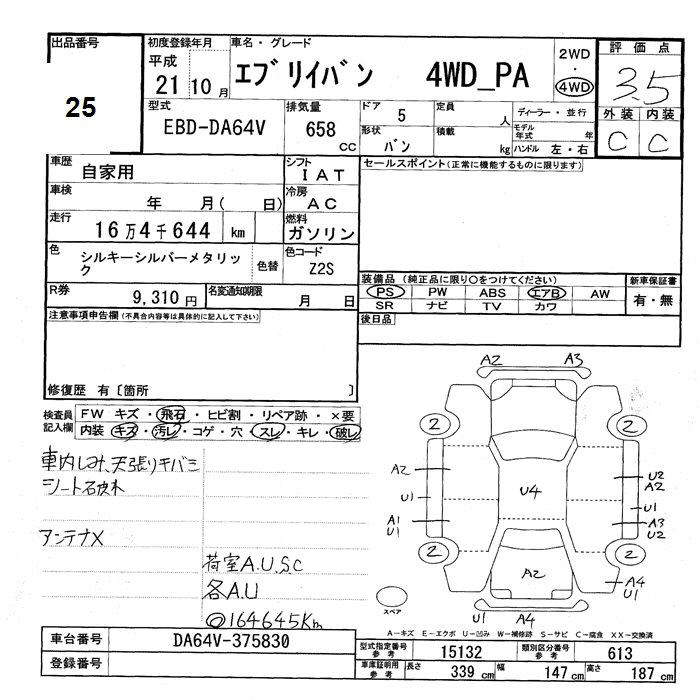 出品番号
25
初度登録年月
平成
21 10月
車名・グレード
エブリイバン 4WD_PA
2WD
・
4WD
評価点
3.5
外装 内装
C C
型式
EBD-DA64V
排気量
658 CC
ドア 5
形状 バン
定員 人
積載 kg
ディーラー・並行
モデル年式 年
ハンドル 左・右
車歴
自家用
シフト
IAT
車検
年 月( 日)
冷房
AC
走行
16万4千644 km
燃料
ガソリン
色
シルキーシルバーメタリック
色替
色コード
Z2S
R券
9,310円
名変通知期限
月 日
セールスポイント(正常に機能するものに限ります)
装備品(純正品に限り〇をつけてください)
PS PW ABS エアB AW
SR ナビ TV カワ
新車保証書
有・無
後日品
注意事項申告欄(不具合内容等は具体的に記入して下さい)
修復歴 有〔箇所 〕
検査員記入欄
FW キズ・飛石・ヒビ割・リペア跡・×要
内装 キズ・汚レ・コゲ・穴・スレ・キレ・破レ
車内しみ、天張りキバミ
シート破れ
アンテナX
荷室A.U.S.C
各A.U
◎164645Km
A2 A3
2 2
A2
U1
A1
U1
U4
U2
A2
U1
A3
U2
2 2
A2
A4
U1
U1 A4
スペア
A-キズ E-エクボ U-凹み W-補修跡 S-サビ C-腐食 XX-交換済
車台番号
DA64V-375830
登録番号
型式指定番号
参考
15132
類別区分番号
参考
613
車庫証明用
参考
長さ 339 cm
幅 147 cm
高さ 187 cm